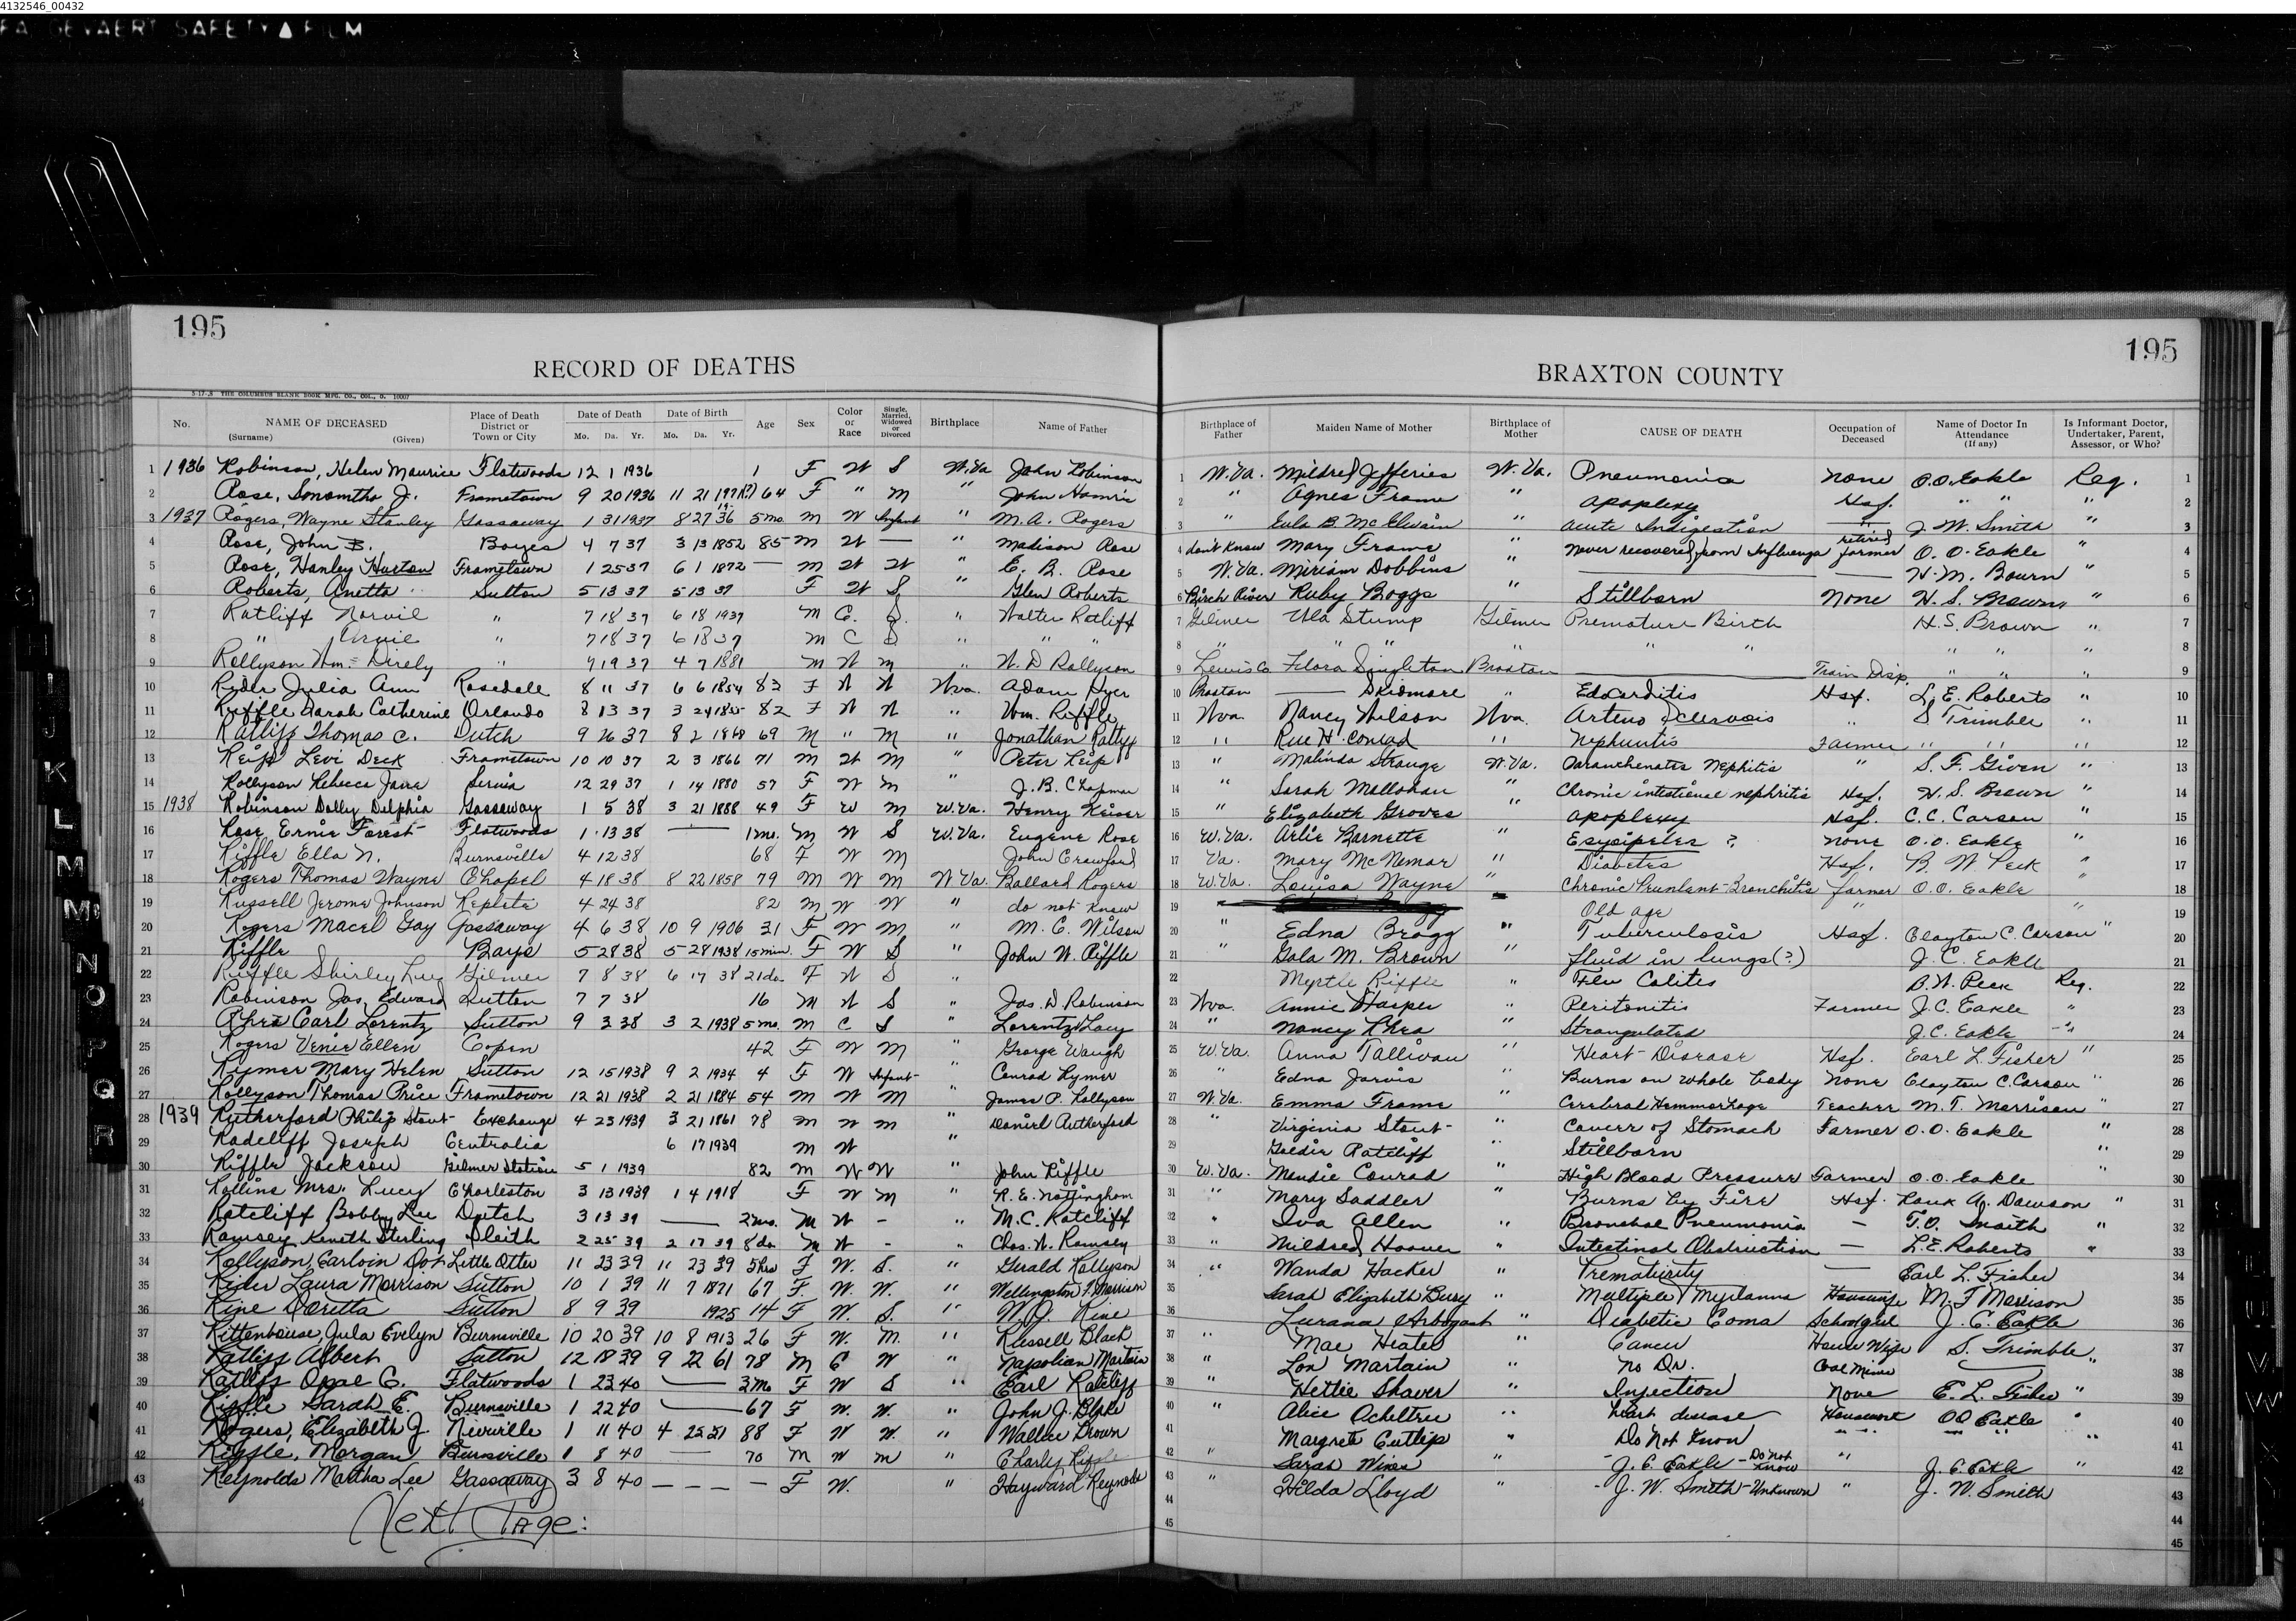 4132546_00432
GEVAERT SAFETY FILM
195
195
RECORD OF DEATHS
BRAXTON COUNTY
THE COLUMBUS BLANK BOOK MFG. CO., COL., O. 10007
No. NAME OF DECEASED (Surname) (Given) Place of Death District or Town or City Date of Death Mo. Da. Yr. Date of Birth Mo. Da. Yr. Age Sex Color or Race Single, Married, Widowed or Divorced Birthplace Name of Father Birthplace of Father Maiden Name of Mother Birthplace of Mother CAUSE OF DEATH Occupation of Deceased Name of Doctor In Attendance (If any) Is Informant Doctor, Undertaker, Parent, Assessor, or Who?
1 1936 Robinson, Helen Maurice Flatwoods 12 1 1936 1 F W S W.Va John Robinson 1 W.Va. Mildred Jefferies W.Va. Pneumonia none O.O. Eakle Reg. 1
2 Rose, J. Frametown 9 20 1936 11 21 64 F " m " John Hamric 2 " Agnes Frame " apoplexy Hsf. " " " 2
3 1937 Rogers, Wayne Stanley Gassaway 1 31 1937 8 27 36 5 mo. m W Infant " M.A. Rogers 3 " Eula B. McElwain " acute Indigestion J. W. Smith " 3
4 Rose, John B. Boyes 4 7 37 3 13 1852 85 m W — " Madison Rose 4 don't Know Mary Frame " never recovered from Influenza retired farmer O. O. Eakle " 4
5 Rose, Hanley Frametown 1 25 37 6 1 1872 — m W W " E. B. Rose 5 W.Va. Miriam Dobbins " — — H. M. Bourn " 5
6 Roberts, Anetta Sutton 5 13 37 5 13 37 F W S " Glen Roberts 6 Birch River Ruby Boggs " Stillborn None H. S. Brown " 6
7 Ratliff Norvil " 7 18 37 6 18 1937 m C. S. " Walter Ratliff 7 Gilmer Ula Stump Gilmer Premature Birth H.S. Brown " 7
8 " Arvie " 7 18 37 6 18 37 m C S " " " 8 " " " " " " " " " 8
9 Rollyson Wm. Direly " 7 19 37 4 7 1881 m W m " W. D Rollyson 9 Lewis Co Flora Singleton Braxton — Train Disp. " " " 9
10 Rider Julia Ann Rosedale 8 11 37 6 6 1854 83 F W W Wva. Adam Dyer 10 Braxton — Skidmore " Edocarditis Hsf. L. E. Roberts " 10
11 Riffle Sarah Catherine Orlando 8 13 37 3 24 1855 82 F W W " Wm. Riffle 11 Wva. Nancy Wilson Wva. Arteno Sclerosis " S Trimble " 11
12 Ratliff Thomas C. Dutch 9 26 37 8 2 1868 69 M " M " Jonathan Ratliff 12 " Rue H. Conrad " Farmer " " " 12
13 Reip Levi Deck Frametown 10 10 37 2 3 1866 71 m W M " Peter Reip 13 " Malinda Strange W.Va. Nephitis " S. F. Given " 13
14 Rollyson Rebecca Servia 12 29 37 1 14 1880 57 F W m " J. B. Chapman 14 " Sarah Mollohan " Chronic intestional nephritis Hsf. H. S. Brown " 14
15 1938 Robinson Dolley Delphia Gassaway 1 5 38 3 21 1888 49 F W m W.Va. Henry Keiser 15 " Elizabeth Groves " apoplexy Hsf. C.C. Carson " 15
16 Rose Ernie Forest Flatwoods 1 13 38 — 1 mo. m W S W.Va. Eugene Rose 16 W.Va. Arlie Barnette " Esysipeles ? none O.O. Eakle " 16
17 Riffle Ella N. Burnsville 4 12 38 68 F W m John Crawford 17 Va. Mary McNemar " Diabetes Hsf. B. W. Peck " 17
18 Rogers Thomas Wayne Chapel 4 18 38 8 22 1858 79 M W M W Va. Ballard Rogers 18 W.Va. Louisa Wayne " Chronic Bronchitis farmer O.O. Eakle " 18
19 Russell Jerome Johnson Replete 4 24 38 82 m W W " do not know 19 Old age " " 19
20 Rogers Macel Gay Gassaway 4 6 38 10 9 1906 31 F W m " M. C. Wilson 20 " Edna Bragg " Tuberculosis Hsf. Clayton C. Carson " 20
21 Riffle 5 28 38 5 28 1938 15 min. F W S " John W. Riffle 21 " Gala M. Brown " fluid in lungs (?) J. C. Eakle 21
22 Riffle Shirley Gilmer 7 8 38 6 17 38 21 da. F W S " 22 Myrtle Riffle " Colitis B. W. Peck Reg. 22
23 Robinson Jas. Edward Sutton 7 7 38 16 m W S " Jas. D Robinson 23 Wva. Annie Harper " Peritonitis Farmer J.C. Eakle " 23
24 Rhea Carl Lorentz Sutton 9 3 38 3 2 1938 5 mo. m C S " Lorentz Lacy 24 " Nancy Rhea " Strangulated J.C. Eakle " 24
25 Rogers Venie Ellen Copen 42 F W M " George Waugh 25 W.Va. Anna Tallivan " Heart Disease Hsf. Earl L. Fisher " 25
26 Rymer Mary Helen Sutton 12 15 1938 9 2 1934 4 F W Infant " Conrad Rymer 26 " Edna Jarvis " Burns on whole body none Clayton C. Carson " 26
27 Rollyson Thomas Price Frametown 12 21 1938 2 21 1884 54 m W M " James P. Rollyson 27 W.Va. Emma Frame " Cerebral Hemmorhage Teacher M. T. Morrison " 27
28 1939 Rutherford Philip Stout Exchange 4 23 1939 3 21 1861 78 m W m " Daniel Rutherford 28 " Virginia Stout " Cancer of Stomach Farmer O.O. Eakle " 28
29 Radcliff Joseph Centralia 6 17 1939 m W " 29 Goldie Ratcliff " Stillborn " 29
30 Riffle Jackson Gilmer Station 5 1 1939 82 m W W " John Riffle 30 W.Va. Mendie Conrad " High Blood Pressure Farmer O.O. Eakle " 30
31 Rollins Mrs. Lucy Charleston 3 13 1939 1 4 1918 F W m " R. E. Nottingham 31 " Mary Saddler " Burns by Fire Hsf. A. Dawson " 31
32 Ratcliff Bobby Lee Dutch 3 13 39 — 2 mo. M W - " M.C. Ratcliff 32 " Iva Allen " Bronchal Pneumonia — T.O. Smith " 32
33 Ramsey Keneth Sterling Sleith 2 25 39 2 17 39 8 da M W - " Chas. W. Ramsey 33 " Mildred Hoover " Intestinal Obstruction — L.E. Roberts " 33
34 Rollyson, Carloin Dot Little Otter 11 23 39 11 23 39 5 hrs F W. S. " Gerald Rollyson 34 " Wanda Hacker " Prematurity — Earl L. Fisher 34
35 Rider Laura Morrison Sutton 10 1 39 11 7 1871 67 F. W. W. " Wellington F. Morrison 35 Sarah Elizabeth Berry " Multiple Housewife M. T Morrison 35
36 Rine Doretta Sutton 8 9 39 1925 14 F W. S. " W. O. Rine 36 Lurana Arbogast " Diabetic Coma Schoolgirl J. C. Eakle 36
37 Rittenhouse, Jula Evelyn Burnsville 10 20 39 10 8 1913 26 F W. M. " Russell Black 37 " Mae Heater " Cancer House Wife S. Trimble 37
38 Ratliff Albert Sutton 12 18 39 9 22 61 78 M C W " Napolian Martain 38 " Lon Martain " No Dr. Coal Miner — " 38
39 Ratliff Opal G. Flatwoods 1 23 40 — 3 Mo F W S " Earl Ratcliff 39 " Hettie Shaver " Injection None E. L. Fisher " 39
40 Riffle Sarah E. Burnsville 1 22 40 — 67 F W. W. " John J. Blake 40 " Alice Ocheltree " heart disease Housework OO Eakle " 40
41 Rogers, Elizabeth J. 1 11 40 4 25 51 88 F W W. " Wallace Brown 41 Margrete Cutlip " Do Not Know " " " " 41
42 Riffle, Morgan Burnsville 1 8 40 — 70 M W m " Charley Riffle 42 " Sarah " J. C. Eakle - Do Not Know " J. C. Eakle " 42
43 Reynolds Martha Lee Gassaway 3 8 40 — — — — F W. " Hayward Reynolds 43 " Hilda Lloyd " J. W. Smith - Unknown " J. W. Smith 43
44 44
Next Page:
45 45